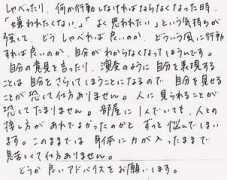 しゃべったり、何か行動しなければならなくなった時、
「嫌われたくない」「よく思われたい」という気持ちが
強くて、どうしゃべれば良いのか、どういう風に行動
すれば良いのか、自分がわからなくなってしまうんです。
自分の意見を言ったり、演奏のように自分を表現する
ことは自分をさらしてしまうことになるので、自分を見せる
ことが恐くて仕方ありません。人に見られることが
恐くてたまりません。部屋に1人でいても、人との
接し方があれでよかったのかと ずっと悩んでしまい
ます。このままでは 身体に力が入ったままで
苦しくて仕方ありません。
どうか良いアドバイスをお願いします。